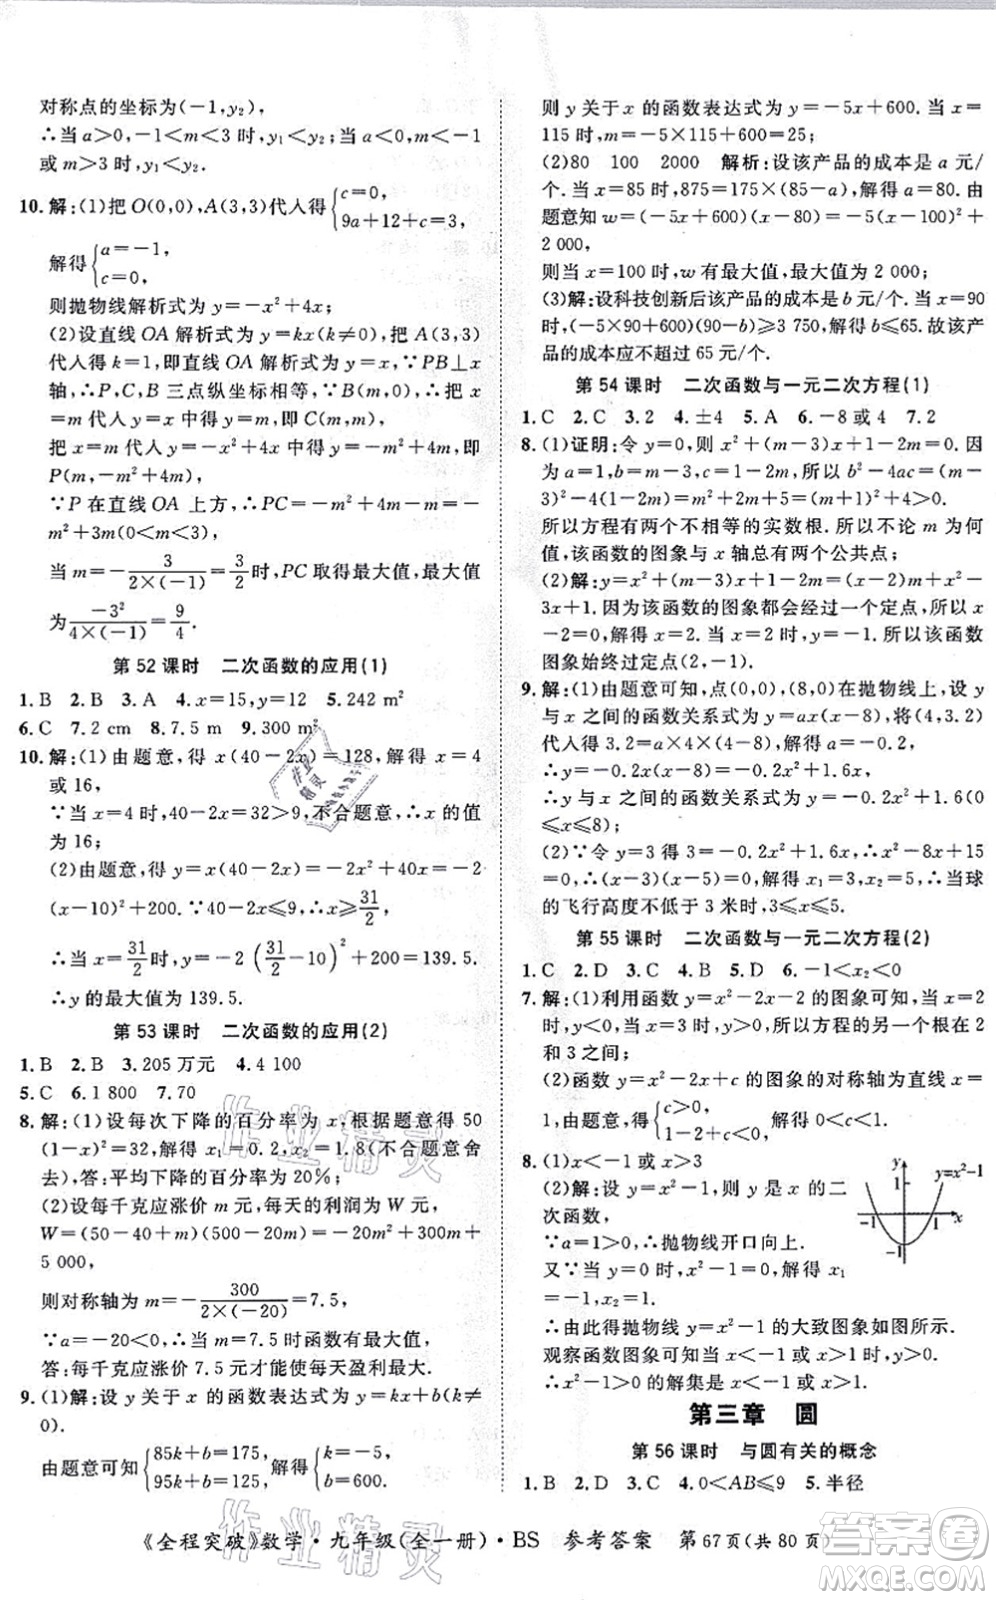 对称点的坐标为(－1,y₂),
∴当a＞0,－1＜m＜3时,y₁＜y₂;当m＜－1
或m＞3时,y₁＞y₂.
10.解:(1)把O(0,0),A(3,3)代入得{c=0, 9a+12+c=3,
解得{a=－1, c=0,
则抛物线解析式为y=－x²+4x;
(2)设直线OA解析式为y=kx(k≠0),把A(3,3)
代入得k=1,即直线OA解析式为y=x,∵PB⊥x
轴,∴P,C,B三点纵坐标相等∵B(m,0),把x=
m代入y=x中得y=m,即C(m,m),
把x=m代入y=－x²+4x中得y=－m²+4m,即
P(m,－m²+4m),
∵P在直线OA上方,∴PC=－m²+4m－m=－
m²+3m(0＜m＜3),
当m=－3/(2×(－1))=3/2时,PC取得最大值,最大值
为－3²/(4×(－1))=9/4.
第52课时 二次函数的应用(1)
1.B 2.B 3.A 4.x=15,y=12 5.242 m²
6.C 7.2 cm 8.7.5 m 9.300 m²
10.解:(1)由题意,得x(40－2x)=128,解得x=4
或16,
∵当x=4时,40－2x=32＞9,不合题意,∴x的值
为16;
(2)由题意,得y=x(40－2x)=－2x²+40x=－2
(x－10)²+200.∵40－2x≤9,∴x≥31/2,
∴当x=31/2时,y=－2(31/2－10)²+200=139.5.
∴y的最大值为139.5.
第53课时 二次函数的应用(2)
1.B 2.B 3.205万元 4.4 100
5.C 6.1 800 7.70
8.解:(1)设每次下降的百分率为x,根据题意得50
(1－x)²=32,解得x₁=0.2,x₂=1.8(不合题意舍
去),答:平均下降的百分率为20%;
(2)设每千克应涨价m元,每天的利润为W元,
W=(50－40+m)(500－20m)=－20m²+300m+
5 000,
则对称轴为m=－300/(2×(－20))=7.5,
∵a=－20＜0,∴当m=7.5时函数有最大值,
答:每千克应涨价7.5元才能使每天盈利最大.
9.(1)解:设y关于x的函数表达式为y=kx+b(k≠
0).
由题意可知{85k+b=175, 95k+b=125,解得{k=－5, b=600.
则y关于x的函数表达式为y=－5x+600.当x=
115时,y=－5×115+600=25;
(2)80 100 2000 解析:设该产品的成本是a元/
个.当x=85时,875=175×(85－a),解得a=80.由
题意知w=(－5x+600)(x－80)=－5(x－100)²+
2 000,
则当x=100时,w有最大值,最大值为2 000元;
(3)解:设科技创新后该产品的成本是b元/个,x=90
时,(－5×90+600)(90－b)≥3 750,解得b≤65.故该产
品的成本应不超过65元/个.
第54课时 二次函数与一元二次方程(1)
1.C 2.C 3.2 4.±4 5.A 6.－8或4 7.2
8.(1)证明:令y=0,则x²+(m－3)x+1－2m=0.因
为a=1,b=m－3,c=1－2m,所以b²－4ac=(m－
3)²－4(1－2m)=(m+1)²+4＞0.
所以方程有两个不相等的实数根.所以不论m为何
值,该函数的图象与x轴总有两个公共点;
(2)解:y=x²+(m－3)x+1－2m=x²－3x+1+
(x－2)m.因为该函数的图象都会经过一个定点,所以x
－2=0,解得x=2.当x=2时,y=－1.所以该函数
图象始终过定点(2,－1).
9.解:(1)由题意可知,点(0,0),(8,0)在抛物线上,设y
与x之间的函数关系式为y=ax(x－8),将(4,3.2)
代入得3.2=a×4×(4－8),解得a=－0.2,
∴y=－0.2x(x－8)=－0.2x²+1.6x,
∴y与x之间的函数关系式为y=－0.2x²+1.6x(0
≤x≤8);
(2)∵令y=3得3=－0.2x²+1.6x,∴x²－8x+15
=0,∴(x－3)(x－5)=0,解得x₁=3,x₂=5,∴当球
的飞行高度不低于3米时,x的取值范围为3≤x≤5.
第55课时 二次函数与一元二次方程(2)
1.C 2.D 3.C 4.B 5.D 6.－1＜x₂＜0
7.解:(1)利用函数y=x²－2x－2的图象可知,当x=2
时,y＜0,当x=3时,y＞0,所以方程的另一个根在2
和3之间;
(2)函数y=x²－2x+c的图象的对称轴为直线x=
1,由题意,得{c＞0, 1－2+c＜0,解得0＜c＜1.
8.(1)x＜－1或x＞3
(2)解:设y=x²－1,则y是x的二
次函数,
∵a=1＞0,∴抛物线开口向上.
又∵当y=0时,x²－1=0,解得x₁
=－1,x₂=1.
∴由此得抛物线y=x²－1的大致图象如图所示.
观察函数图象可知:当x＜－1或x＞1时,y＞0.
∴x²－1＞0的解集是:x＜－1或x＞1.
y
y=x²－1
1
－1
1
x
－1
第三章 圆
第56课时 与圆有关的概念
1.B 2.D 3.C 4.0＜AB≤9 5.半径
《全程突破》数学·九年级(全一册)·BS 参考答案 第67页(共80页)
作业精灵
作业精灵
作业精灵
答案圈
MXQE.COM